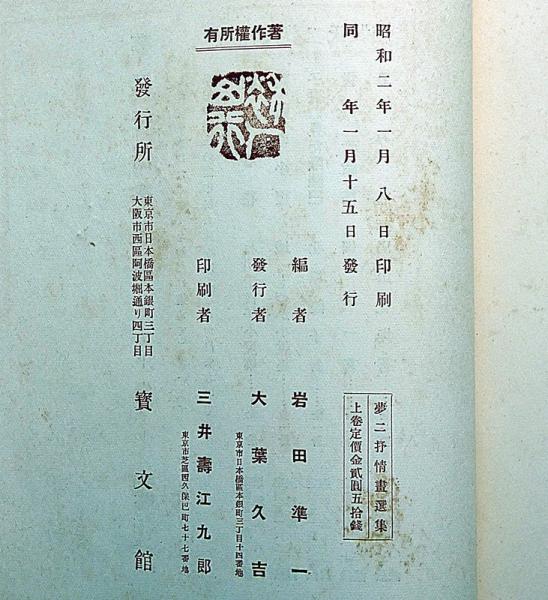 昭和二年一月八日印刷
同　年一月十五日發行
夢二抒情畫選集
上卷定價金貳圓五拾錢
有所權作著
編者　岩田準一
發行者　大葉久吉
東京市日本橋區本銀町三丁目十四番地
印刷者　三井壽江九郎
東京市芝區西久保巴町七十七番地
發行所　東京市日本橋區本銀町三丁目
大阪市西區阿波堀通り四丁目
寶文館